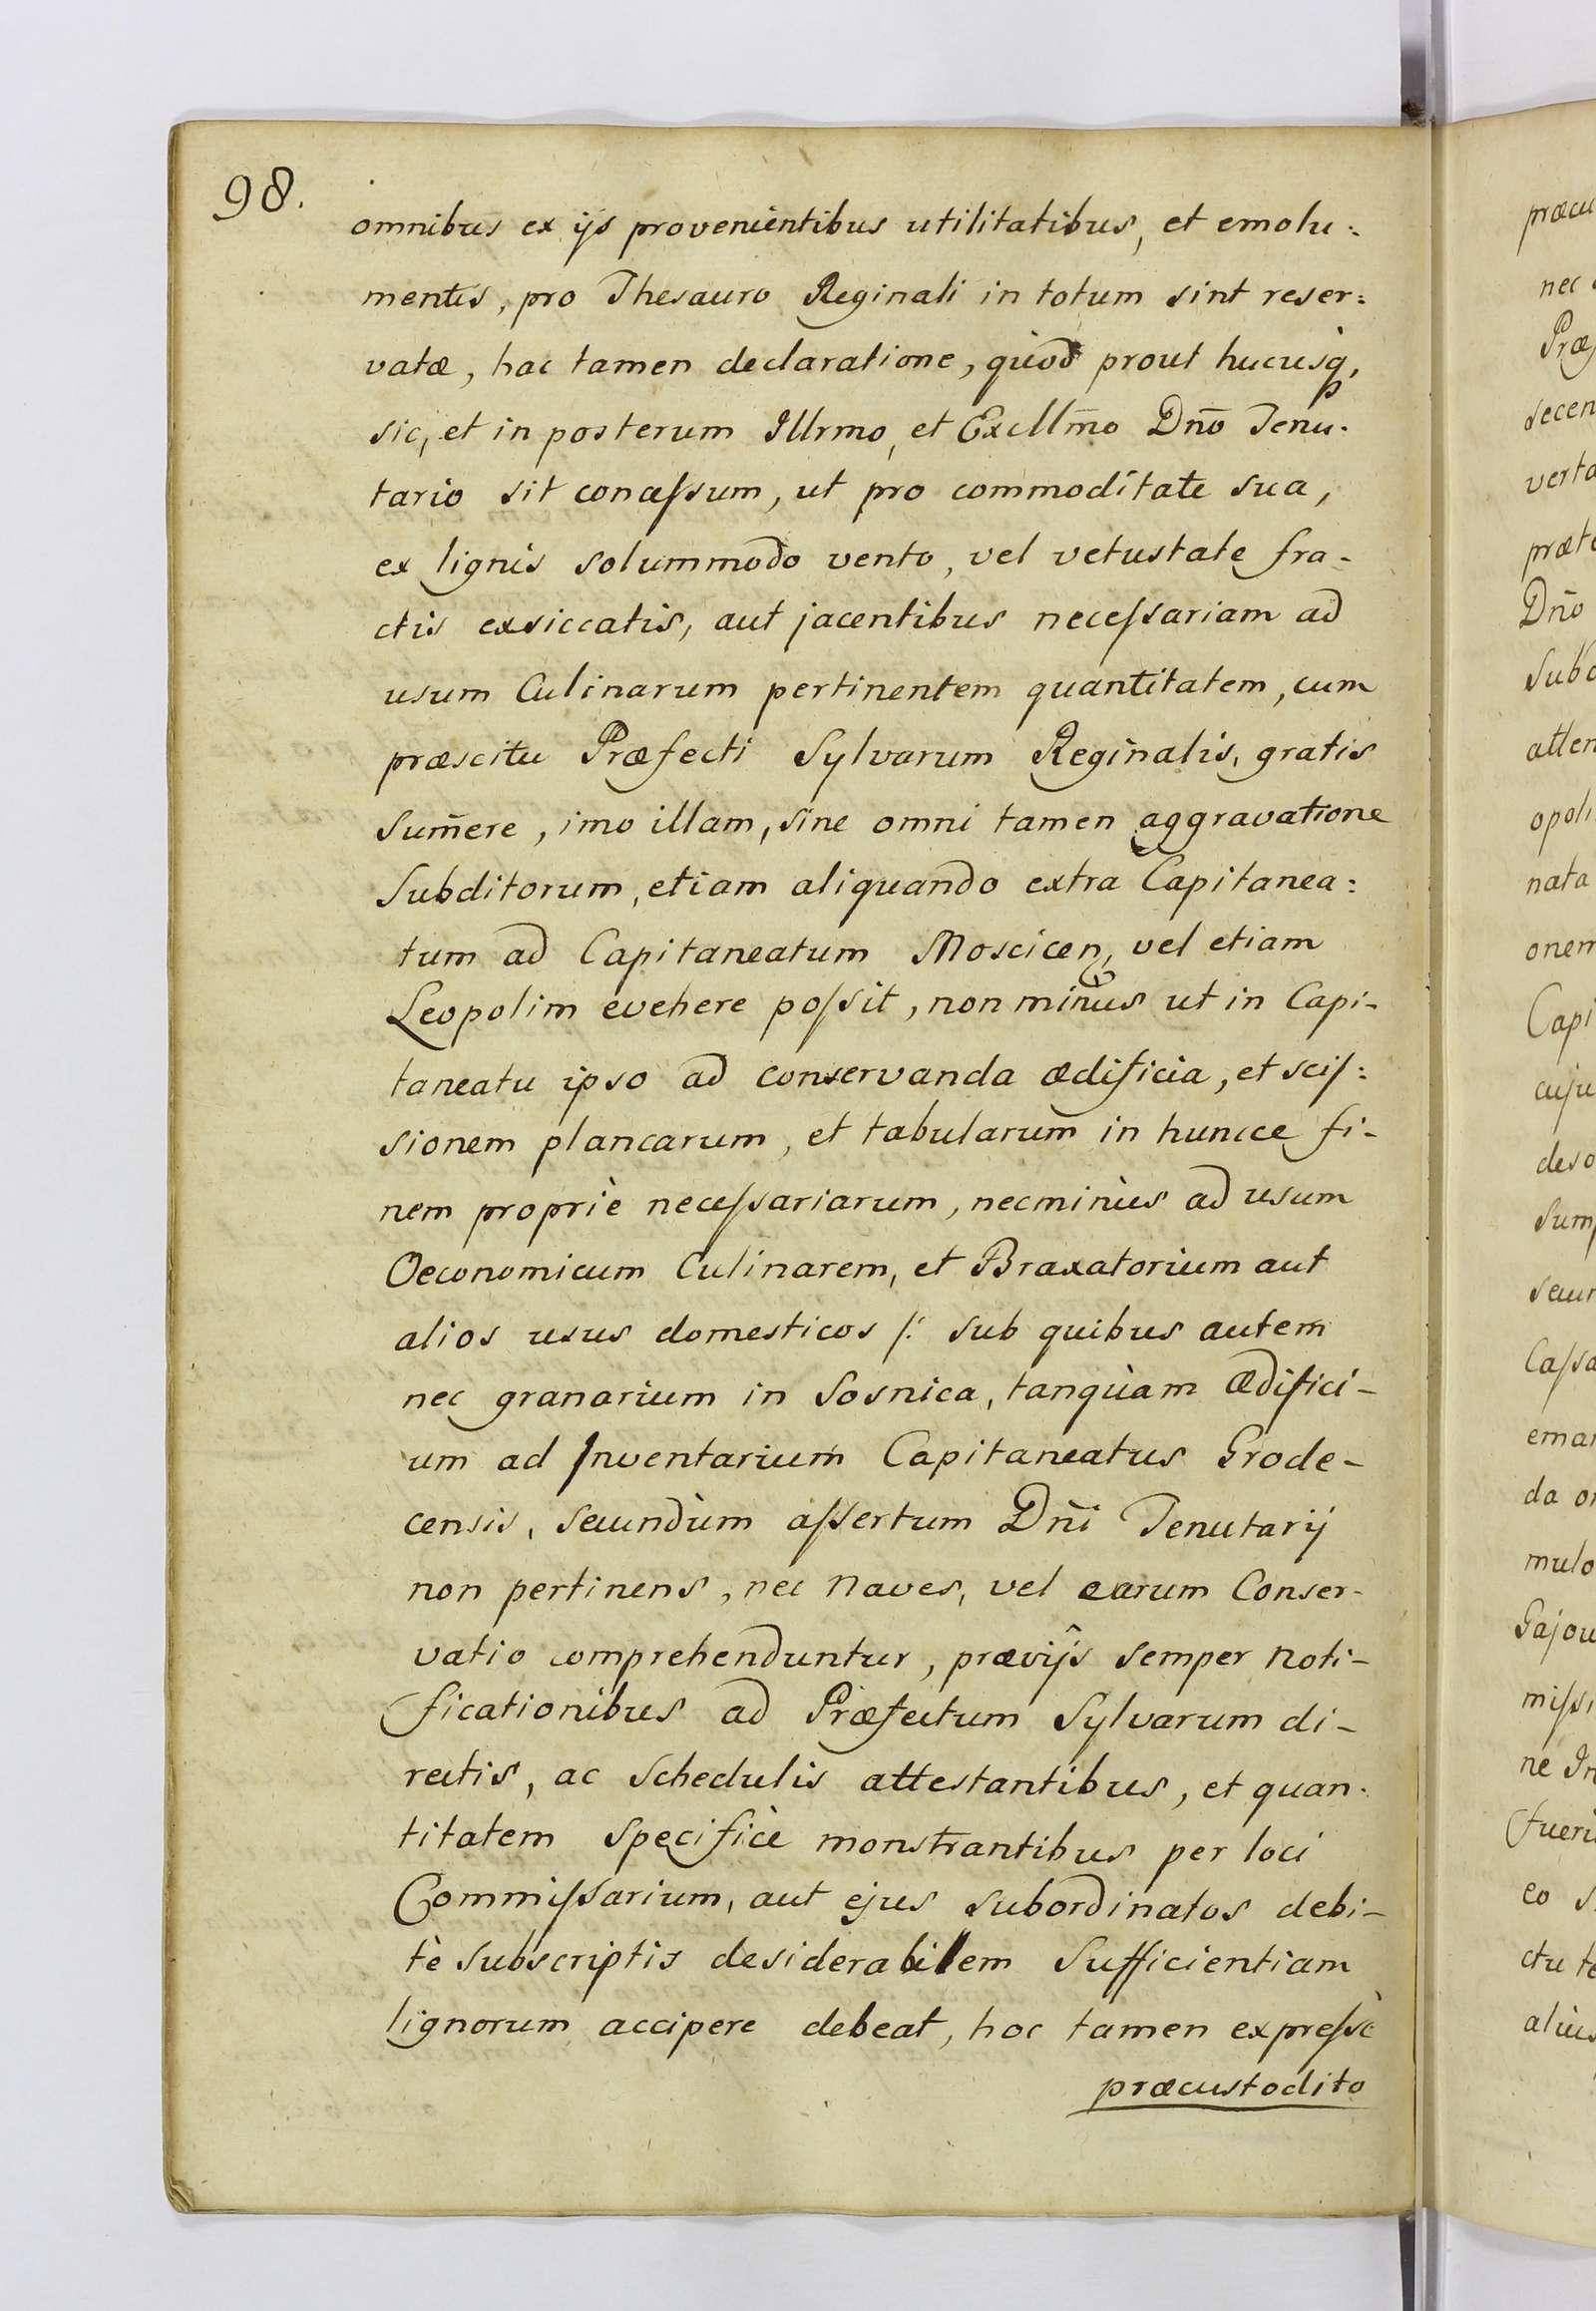 98.
omnibus ex ijs provenientibus utilitatibus, et emolu:
mentis, pro Thesauro Reginali in totum sint reser:
vatæ, hac tamen declaratione, quòd prout hucusq,
sic, et in posterum Illrmo, et Excllm̄o Dn̄o Tenu-
tario sit conceſsum, ut pro commoditate sua,
ex lignis solummodo vento, vel vetustate fra-
ctis exsiccatis, aut jacentibus neceſsariam ad
usum Culinarum pertinentem quantitatem, cum
præscitu Præfecti Sylvarum Reginalis, gratis
sum̄ere, imo illam, sine omni tamen aggravatione
Subditorum, etiam aliquando extra Capitanea:
tum ad Capitaneatum Moscicen, vel etiam
Leopolim evehere poſsit, non minùs ut in Capi-
taneatu ipso ad conservanda ædificia, et sciſ:
sionem plancarum, et tabularum in huncce fi-
nem propriè neceſsariarum, necminùs ad usum
Oeconomicum Culinarem, et Braxatorium aut
alios usus domesticos /: sub quibus autem
nec granarium in Sosnica, tanquàm ædifici-
um ad Inventarium Capitaneatus Grode-
censis, secundùm aſsertum Dn̄i Tenutarij
non pertinens, nec Naves, vel earum Conser-
vatio comprehenduntur, prævijs semper Noti-
ficationibus ad Præfectum Sylvarum di-
rectis, ac Schedulis attestantibus, et quan-
titatem specificè monstrantibus per loci
Commiſsarium, aut ejus subordinatos debi-
tè subscriptis desiderabilem Sufficientiam
lignorum accipere debeat, hoc tamen expreſsè
præcustodito
nec
Dn̄o
opoli
nata
onem
Capi
cuju
deso
Sum
ema
mulo
miſsi
eo